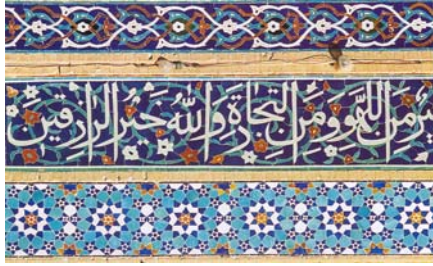 مِنَ اللَّهْوِ وَمِنَ التِّجَارَةِ وَاللَّهُ خَيْرُ الرَّازِقِينَ